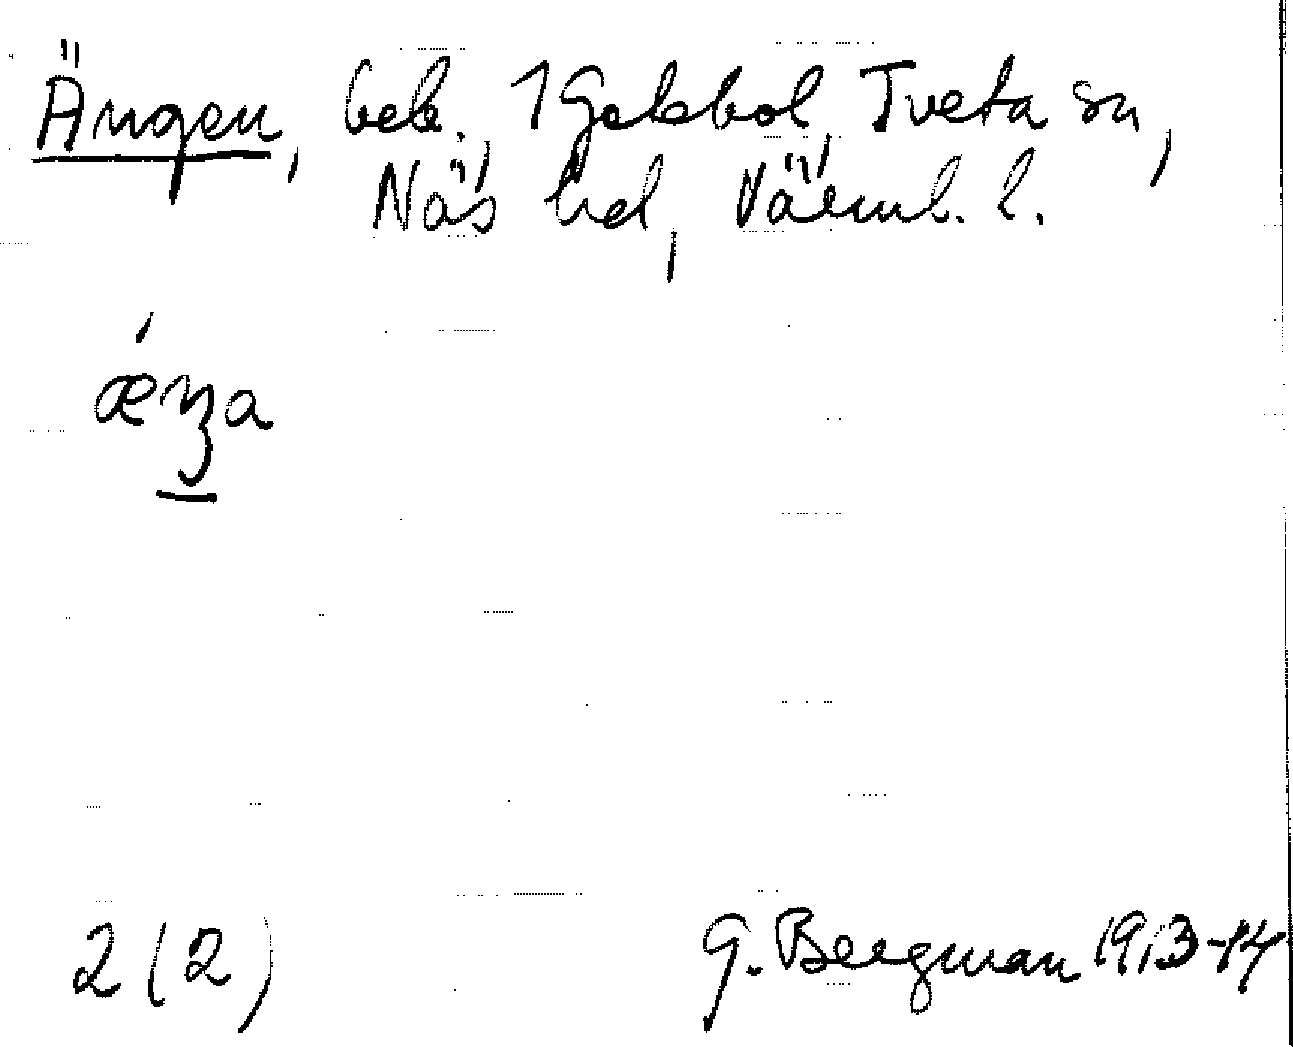 Ängen, beb., 1 Gökbol, Tveta sn,
Näs hd, Värml. l.
2 (2)
G. Bergman 1913-14